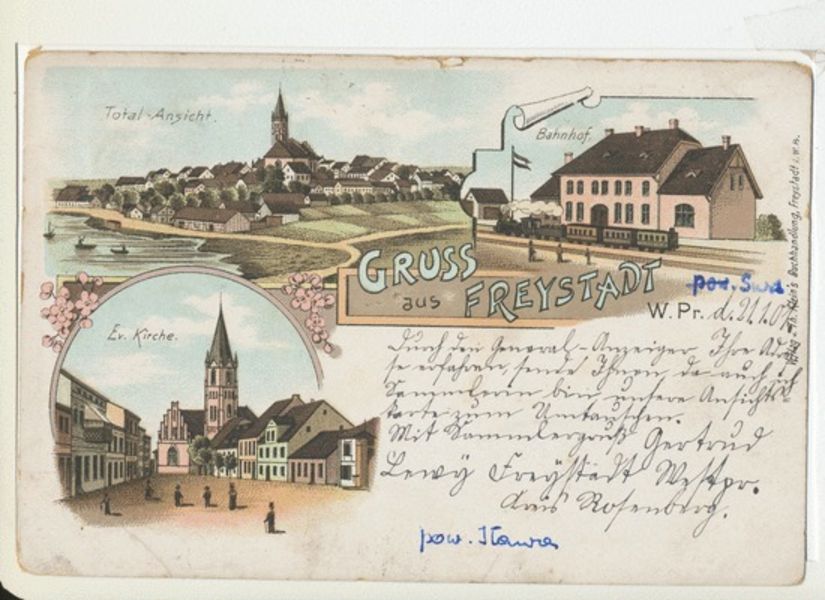 Total-Ansicht.
Bahnhof.
GRUSS
aus FREYSTADT
W.Pr. d. 21.1.
pow. Susz
Ev. Kirche.
Durch den General-Anzeiger Ihre Adres-
se erfahren, sende Ihnen, da auch ich
Sammlerin bin, unsere Ansichts
karte zum Umtauschen.
Mit Sammlergruß Gertrud
Lewy Freystadt Westpr.
Kreis Rosenberg.
pow. Iława
Verlag v. Th. Klein's Buchhandlung, Freystadt i. W.P.